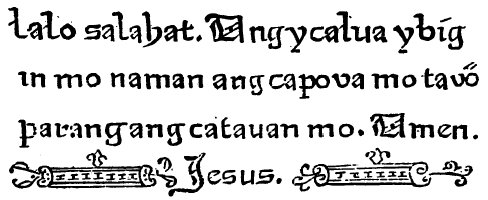 lalo salahat. Ang ycalua ybíg
in mo naman ang capova mo tavő
parang ang catauan mo. Amen.
Jesus.